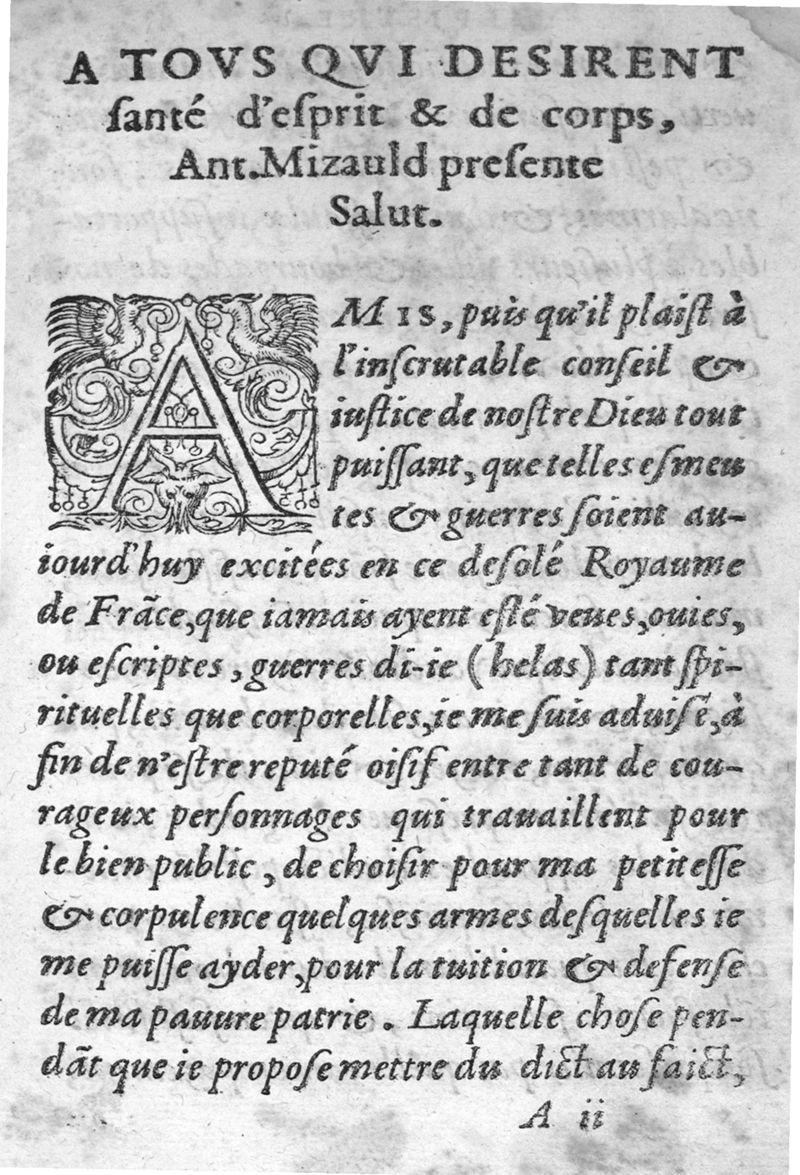 A TOVS QVI DESIRENT
ſanté d'eſprit & de corps,
Ant. Mizauld preſente
Salut.
AMIS, puis qu'il plaiſt à
l'inſcrutable conſeil &
iuſtice de noſtre Dieu tout
puiſſant, que telles eſmeu
tes & guerres ſoient au-
iourd'huy excitées en ce deſolé Royaume
de Frãce, que iamais ayent eſté veues, ouies,
ou eſcriptes, guerres di-ie (helas) tant ſpi-
rituelles que corporelles, ie me ſuis aduiſé, à
fin de n'eſtre reputé oiſif entre tant de cou-
rageux perſonnages qui trauaillent pour
le bien public, de choiſir pour ma petiteſſe
& corpulence quelques armes deſquelles ie
me puiſſe ayder, pour la tuition & defenſe
de ma pauure patrie. Laquelle choſe pen-
dãt que ie propoſe mettre du dict au faict,
A ii